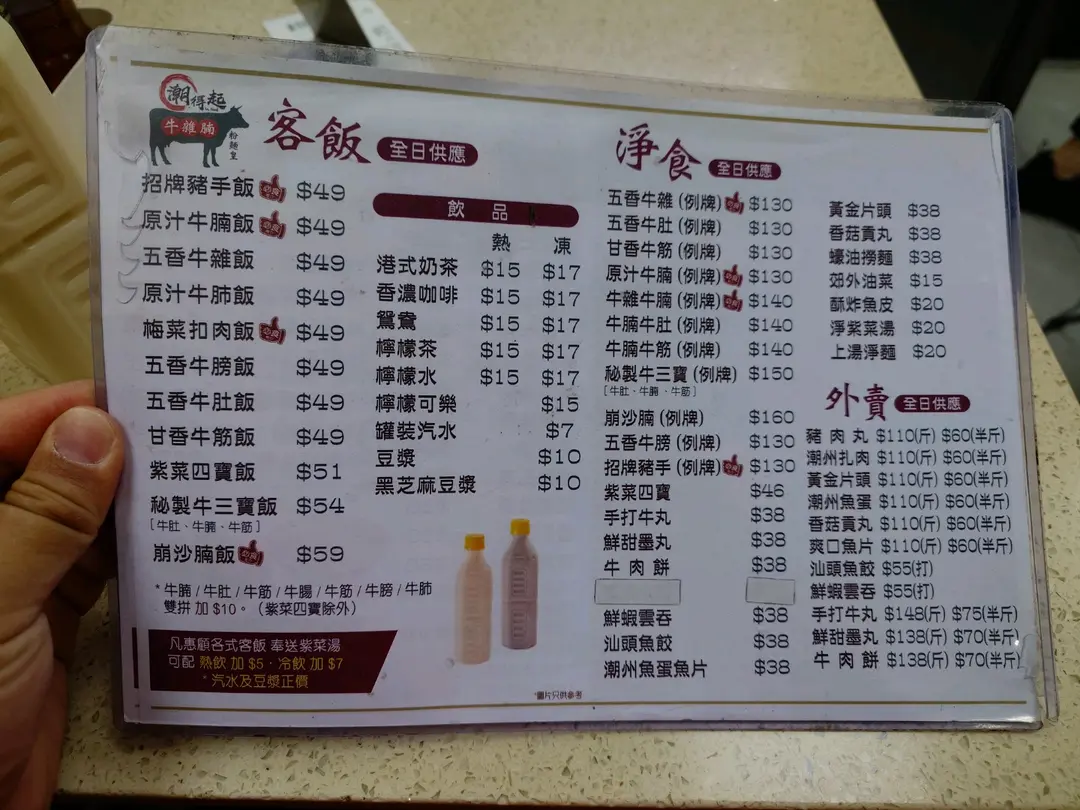 潮得起
牛雜腩
粉麵皇
客飯 全日供應
招牌豬手飯 必食 $49
原汁牛腩飯 必食 $49
五香牛雜飯 $49
原汁牛肺飯 $49
梅菜扣肉飯 必食 $49
五香牛膀飯 $49
五香牛肚飯 $49
甘香牛筋飯 $49
紫菜四寶飯 $51
秘製牛三寶飯 $54
[牛肚、牛腩、牛筋]
崩沙腩飯 必食 $59
*牛腩/牛肚/牛筋/牛腸/牛筋/牛膀/牛肺
雙拼加$10。(紫菜四寶除外)
凡惠顧各式客飯 奉送紫菜湯
可配 熱飲 加 $5 · 冷飲 加 $7
*汽水及豆漿正價
飲品
熱 凍
港式奶茶 $15 $17
香濃咖啡 $15 $17
鴛鴦 $15 $17
檸檬茶 $15 $17
檸檬水 $15 $17
檸檬可樂 $15
罐裝汽水 $7
豆漿 $10
黑芝麻豆漿 $10
淨食 全日供應
五香牛雜 (例牌) 必食 $130
五香牛肚 (例牌) $130
甘香牛筋 (例牌) $130
原汁牛腩 (例牌) 必食 $130
牛雜牛腩 (例牌) 必食 $140
牛腩牛肚 (例牌) $140
牛腩牛筋 (例牌) $140
秘製牛三寶 (例牌) $150
[牛肚、牛腩、牛筋]
崩沙腩 (例牌) $160
五香牛膀 (例牌) $130
招牌豬手 (例牌) 必食 $130
紫菜四寶 $46
手打牛丸 $38
鮮甜墨丸 $38
牛肉餅 $38
鮮蝦雲吞 $38
汕頭魚餃 $38
潮州魚蛋魚片 $38
*圖片只供參考
黃金片頭 $38
香菇貢丸 $38
蠔油撈麵 $38
郊外油菜 $15
酥炸魚皮 $20
淨紫菜湯 $20
上湯淨麵 $20
外賣 全日供應
豬肉丸 $110(斤) $60(半斤)
潮州扎肉 $110(斤) $60(半斤)
黃金片頭 $110(斤) $60(半斤)
潮州魚蛋 $110(斤) $60(半斤)
香菇貢丸 $110(斤) $60(半斤)
爽口魚片 $110(斤) $60(半斤)
汕頭魚餃 $55(打)
鮮蝦雲吞 $55(打)
手打牛丸 $148(斤) $75(半斤)
鮮甜墨丸 $138(斤) $70(半斤)
牛肉餅 $138(斤) $70(半斤)